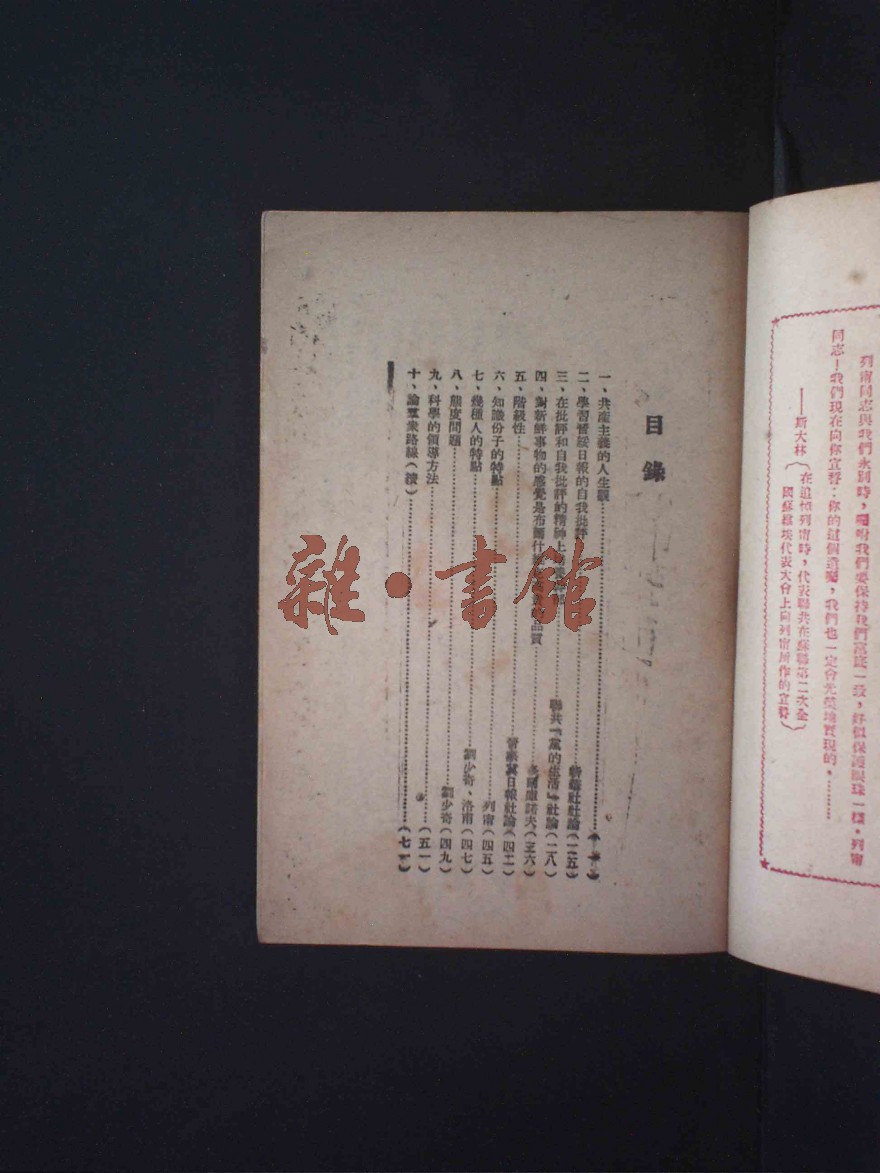 列甯同志與我們永別時，囑咐我們要保持我們黨底一致，好似保護眼珠一樣。列甯
同志！我們現在向你宣誓：你的這個遺囑，我們也一定會光榮地實現的。………
——斯大林（在追悼列甯時，代表聯共在蘇聯第二次全
國蘇維埃代表大會上向列甯所作的宣誓）
目錄
一、共產主義的人生觀
二、學習晉綏日報的自我批評 社社論（二五）
三、在批評和自我批評的精神上 聯共『黨的生活』社論（二八）
四、對新鮮事物的感覺是布爾什 品質 諾夫（三六）
五、階級性 晉察冀日報社論（四二）
六、知識份子的特點 列甯（四五）
七、幾種人的特點 劉少奇、洛甫（四七）
八、態度問題 劉少奇（四九）
九、科學的領導方法 （五一）
十、論羣衆路線（續） （七一）
雜·書館